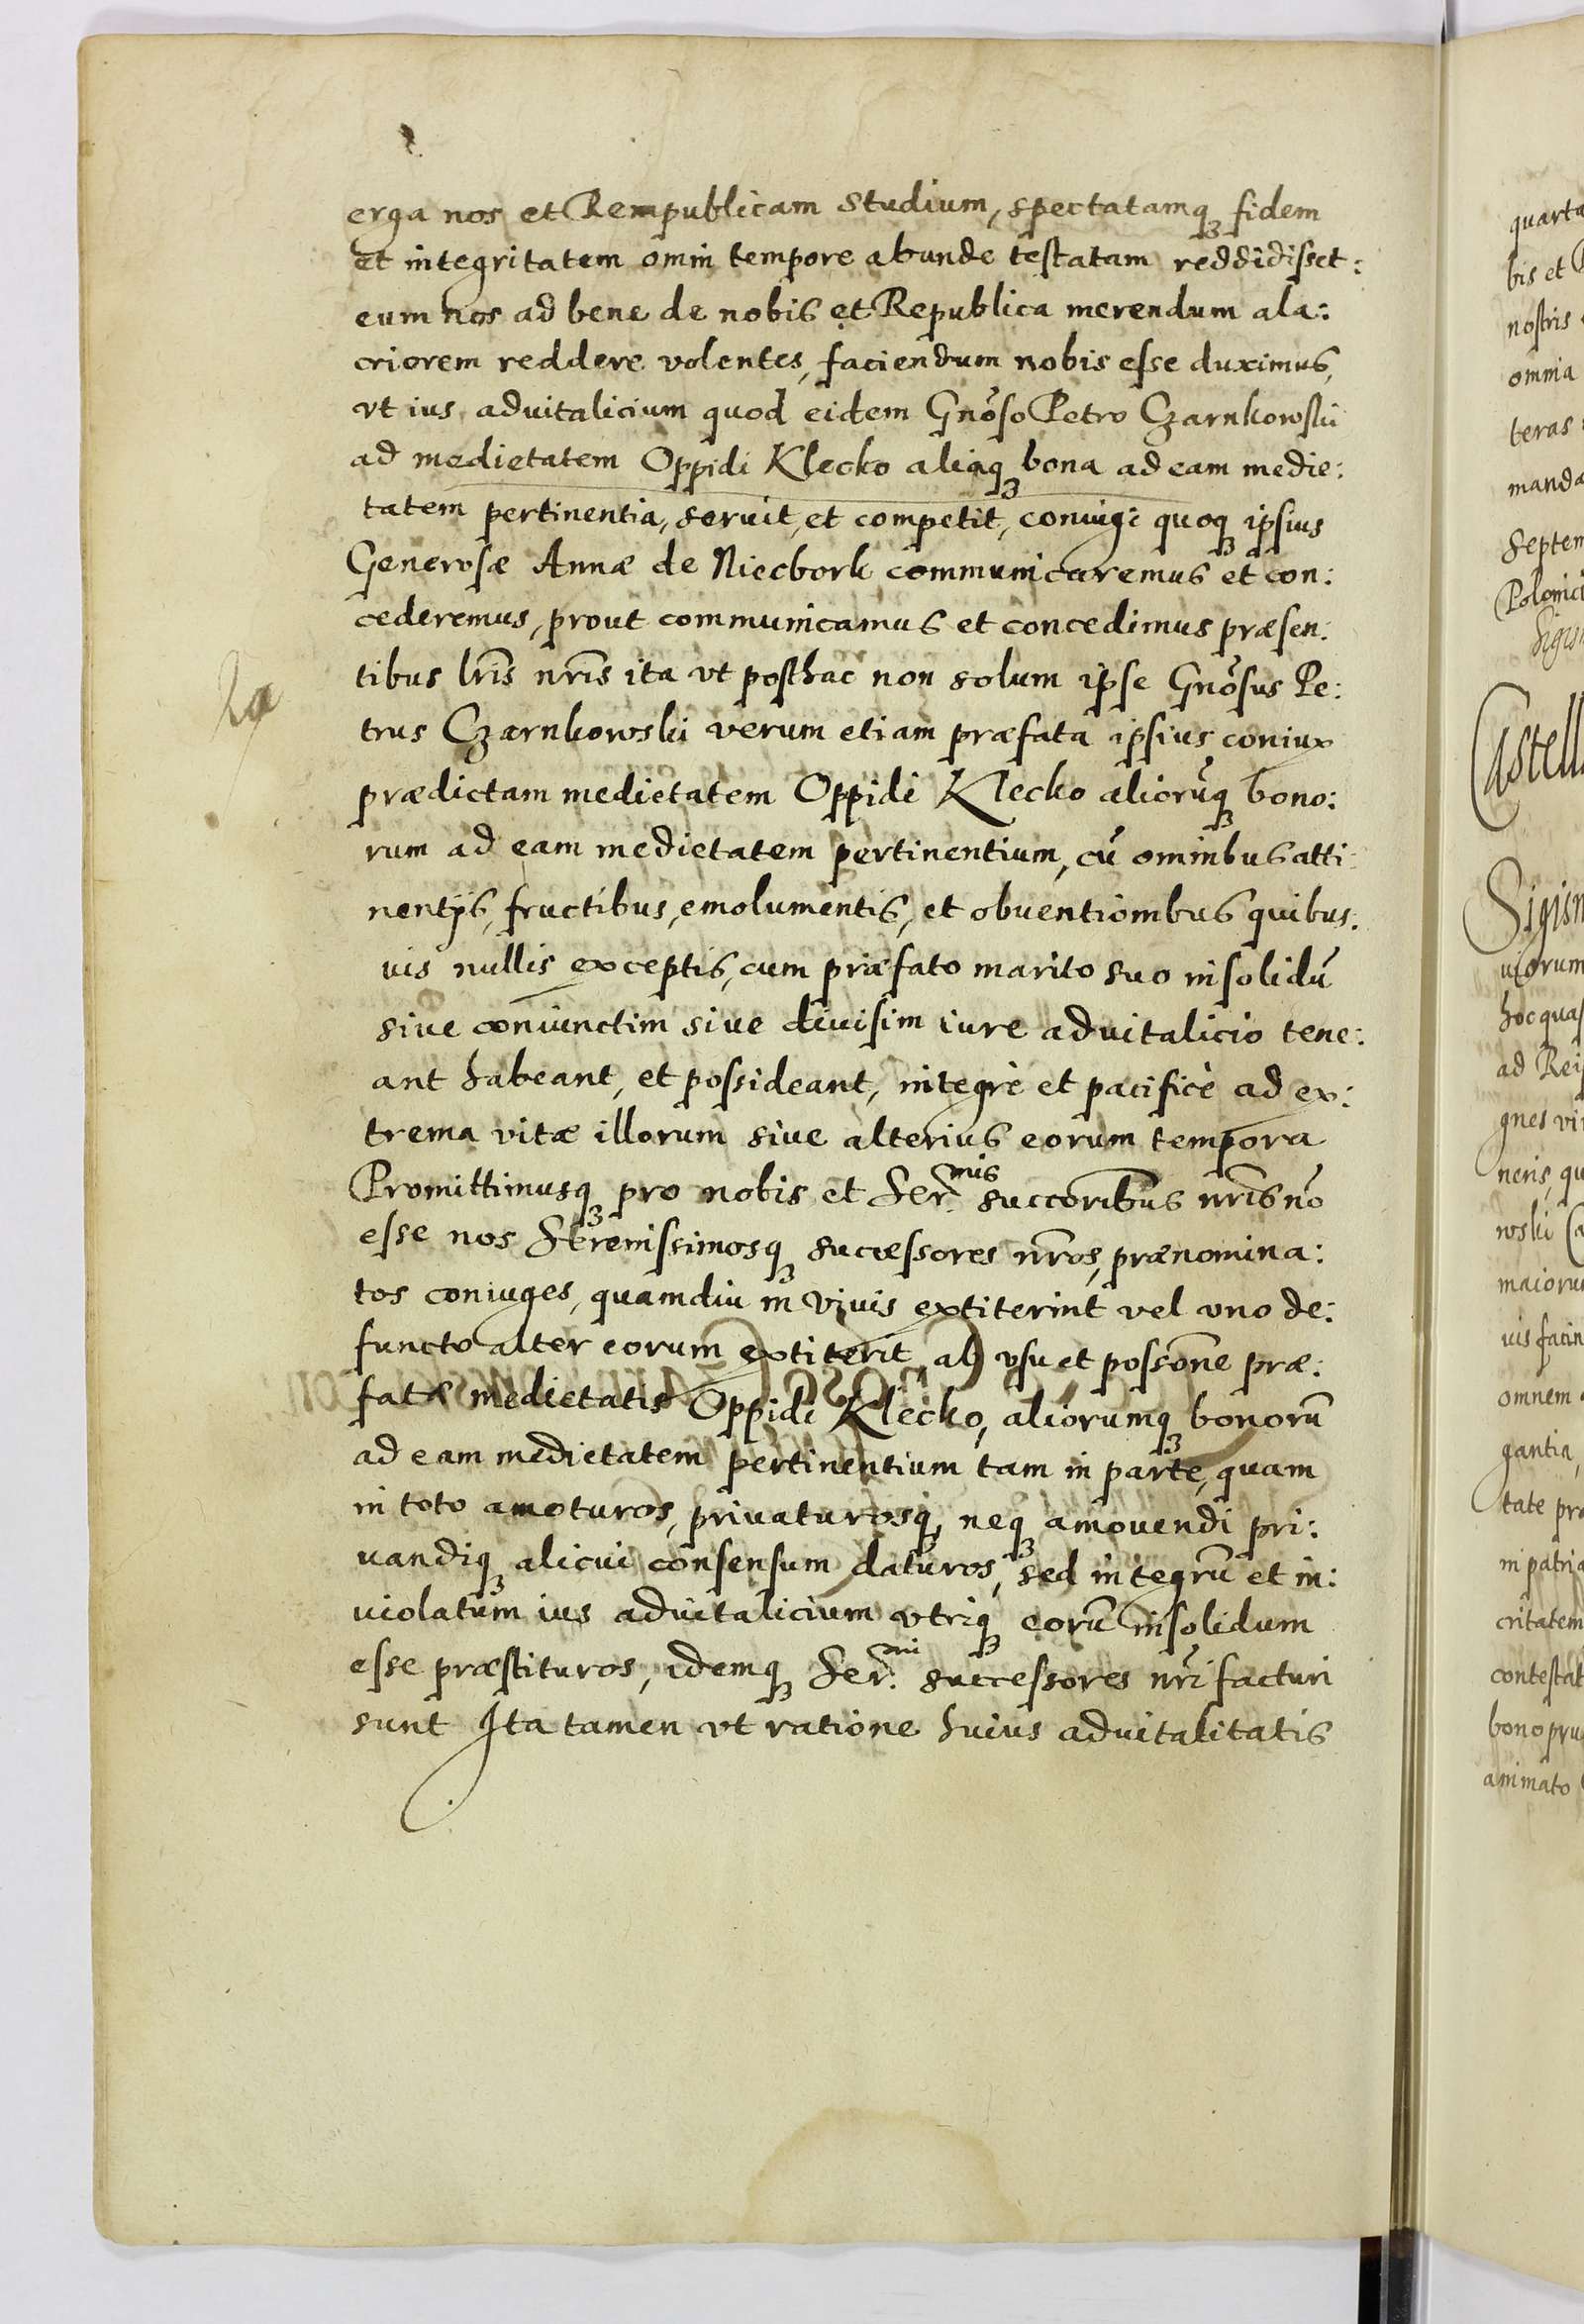 erga nos et Rempublicam studium, spectatamq; fidem
et integritatem omni tempore abunde testatam reddidisset:
eum nos ad bene de nobis et Republica merendum ala:
criorem reddere volentes, faciendum nobis esse duximus,
vt ius aduitalicium quod eidem Gnõso Petro Czarnkowski
ad medietatem Oppidi Klecko aliaq; bona ad eam medie:
tatem pertinentia, seruit, et competit, coniugi quoq; ipsius
Generosæ Annæ de Niecbork communicaremus et con:
cederemus, prout communicamus et concedimus præsen:
tibus lr̃is nr̃is ita vt posthac non solum ipse Gnõsus Pe:
trus Czarnkowski verum etiam præfata ipsius coniux
prædictam medietatem Oppidi Klecko aliorũq; bono:
rum ad eam medietatem pertinentium, cũ omnibus atti:
nentijs, fructibus, emolumentis, et obuentionibus quibus:
uis nullis exceptis, cum præfato marito suo insolidũ
siue coniunctim siue diuisim iure aduitalicio tene:
ant habeant, et possideant, integrè et pacificè ad ex:
trema vitæ illorum siue alterius eorum tempora
Promittimusq; pro nobis et Ser.mis succoribus nr̃is nõ
esse nos Serenissimosq; successores nr̃os, prænomina:
tos coniuges, quamdiu in viuis extiterint vel vno de:
functo alter eorum extiterit, ab vsu et possõne præ:
fatæ medietatis Oppidi Klecko, aliorumq; bonorũ
ad eam medietatem pertinentium tam in parte, quam
in toto amoturos, priuaturosq;, neq; amouendi pri:
uandiq; alicui consensum daturos, sed integrũ et in:
uiolatum ius aduitalicium vtriq; eorũ insolidum
esse præstituros, idemq; Ser.mi successores nr̃i facturi
sunt Ita tamen vt ratione huius aduitalitatis
quarta
bis et
nostris
omnia
teras
manda
Septem
Polonici
Sigis
Castell
Sigism
uiorum
hoc quas
ad Reip
gnes vi
neris, qu
wski Ca
maioru
uis facin
omnem
gantia,
tate pro
in patria
critatem
contestat
bono pru
animato